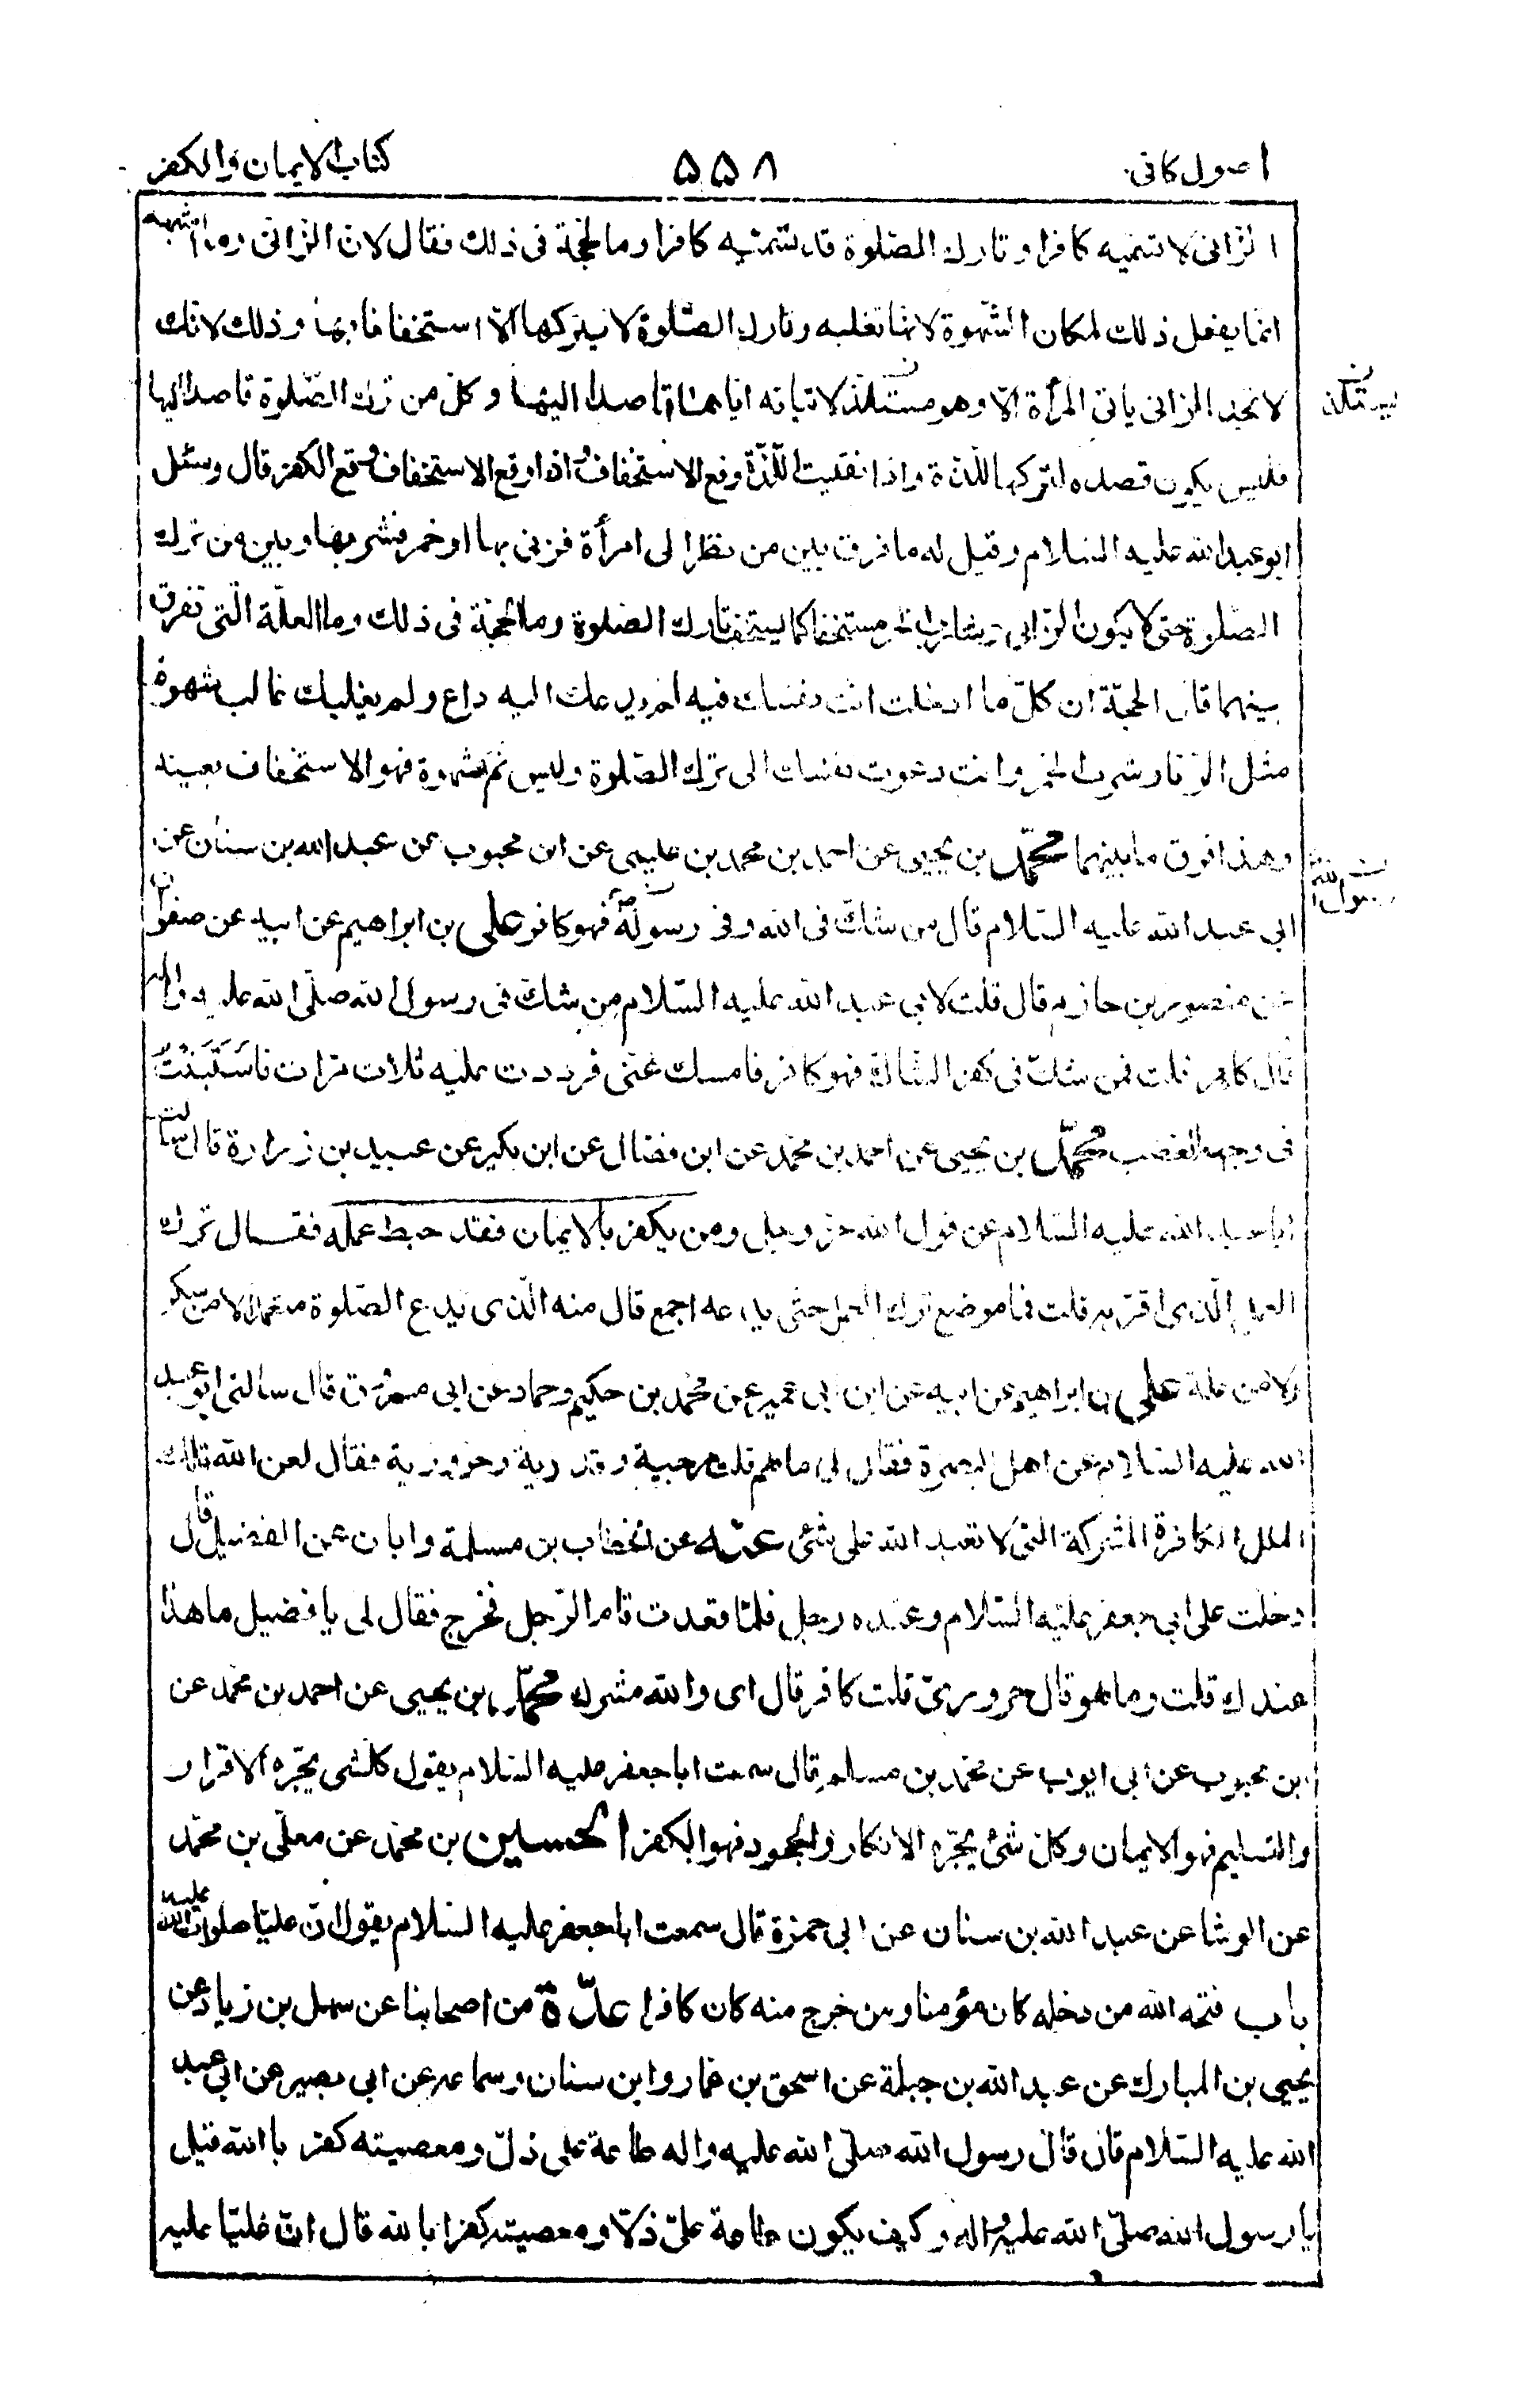 اصول كافى
٥٥٨
كتاب الايمان والكفر
الزانى لا تسميه كافرا و تارك الصّلوة قد تسمّيه كافرا وما الحجّة فى ذلك فقال لان الزانى وما اشبهه
انما يفعل ذلك لمكان الشّهوة لانها تغلبه وتارك الصّلوة لا يتركها الّا استخفافا بها وذلك لانك
لا تجد الزانى ياتى المرأة الّا وهو مستلذ لاتيانه اياها قاصدا اليها وكل من ترك الصّلوة قاصدا اليها
فليس يكون قصده لتركها اللّذة واذا نفيت اللّذة وقع الاستخفاف واذا وقع الاستخفاف وقع الكفر قال وسئل
ابو عبد الله عليه السّلام وقيل له ما فرق بين من نظر الى امرأة فزنى بها او خمر فشربها وبين من ترك
الصّلوة حتى لا يكون الزانى وشارب الخمر مستخفا كما يستخف تارك الصّلوة وما الحجّة فى ذلك وما العلّة الّتى تفرق
بينهما قال الحجّة ان كلّ ما ادخلت انت نفسك فيه لم يدعك اليه داع ولم يغلبك غالب شهوة
مثل الزنا وشرب الخمر وانت دعوت نفسك الى ترك الصّلوة وليس ثم شهوة فهو الاستخفاف بعينه
وهذا فرق ما بينهما محمّد بن يحيى عن احمد بن محمد بن عيسى عن ابن محبوب عن عبد الله بن سنان عن
ابى عبد الله عليه السّلام قال من شكّ فى الله وفى رسوله فهو كافر على بن ابراهيم عن ابيه عن صفوان
عن منصور بن حازم قال قلت لابى عبد الله عليه السّلام من شك فى رسول الله صلّى الله عليه واله
قال كافر قلت فمن شك فى كفر الشاك فهو كافر فامسك عنى فرددت عليه ثلاث مرات فاستبنت
فى وجهه الغضب محمّد بن يحيى عن احمد بن محمّد عن ابن فضال عن ابن بكير عن عبيد بن زرارة قال سالت
ابا عبد الله عليه السّلام عن قول الله عز وجل ومن يكفر بالايمان فقد حبط عمله فقال ترك
العمل الّذى اقرّ به قلت فما موضع ترك العمل حتى يدعه اجمع قال منه الّذى يدع الصّلوة متعمدا لا من سكر
ولا من علة على بن ابراهيم عن ابيه عن ابن ابى عمير عن محمّد بن حكيم وحماد عن ابى مسروق قال سالنى ابو عبد
الله عليه السّلام عن اهل البصرة فقال لى ما هم قلت مرجية وقدرية وحرورية فقال لعن الله تلك
الملل الكافرة المشركة الّتى لا تعبد الله على شئ عنه عن الخطاب بن مسلمة وابان عن الفضيل قال
دخلت على ابى جعفر عليه السّلام وعنده رجل فلمّا قعدت قام الرّجل فخرج فقال لى يا فضيل ما هذا
عندك قلت وما هو قال حرورىّ قلت كافر قال اى والله مشرك محمّد بن يحيى عن احمد بن محمّد عن
ابن محبوب عن ابى ايوب عن محمّد بن مسلم قال سمعت ابا جعفر عليه السّلام يقول كلّ شى يجرّه الاقرار
والتسليم فهو الايمان وكل شئ يجرّه الانكار والجحود فهو الكفر الحسين بن محمّد عن معلّى بن محمّد
عن الوشا عن عبد الله بن سنان عن ابى حمزة قال سمعت ابا جعفر عليه السّلام يقول انّ عليّا صلوات الله عليه
باب فتحه الله من دخله كان مؤمنا ومن خرج منه كان كافرا عدّة من اصحابنا عن سهل بن زياد عن
يحيى بن المبارك عن عبد الله بن جبلة عن اسحق بن عمار وابن سنان وسماعه عن ابى بصير عن ابى عبد
الله عليه السّلام قال قال رسول الله صلّى الله عليه واله طاعة على ذلّ ومعصيته كفر بالله قيل
يا رسول الله صلّى الله عليه واله وكيف يكون طاعة علىّ ذلّا ومعصيته كفرا بالله قال انّ عليّا عليه